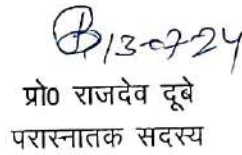 13-07-24
प्रो0 राजदेव दूबे
परास्नातक सदस्य